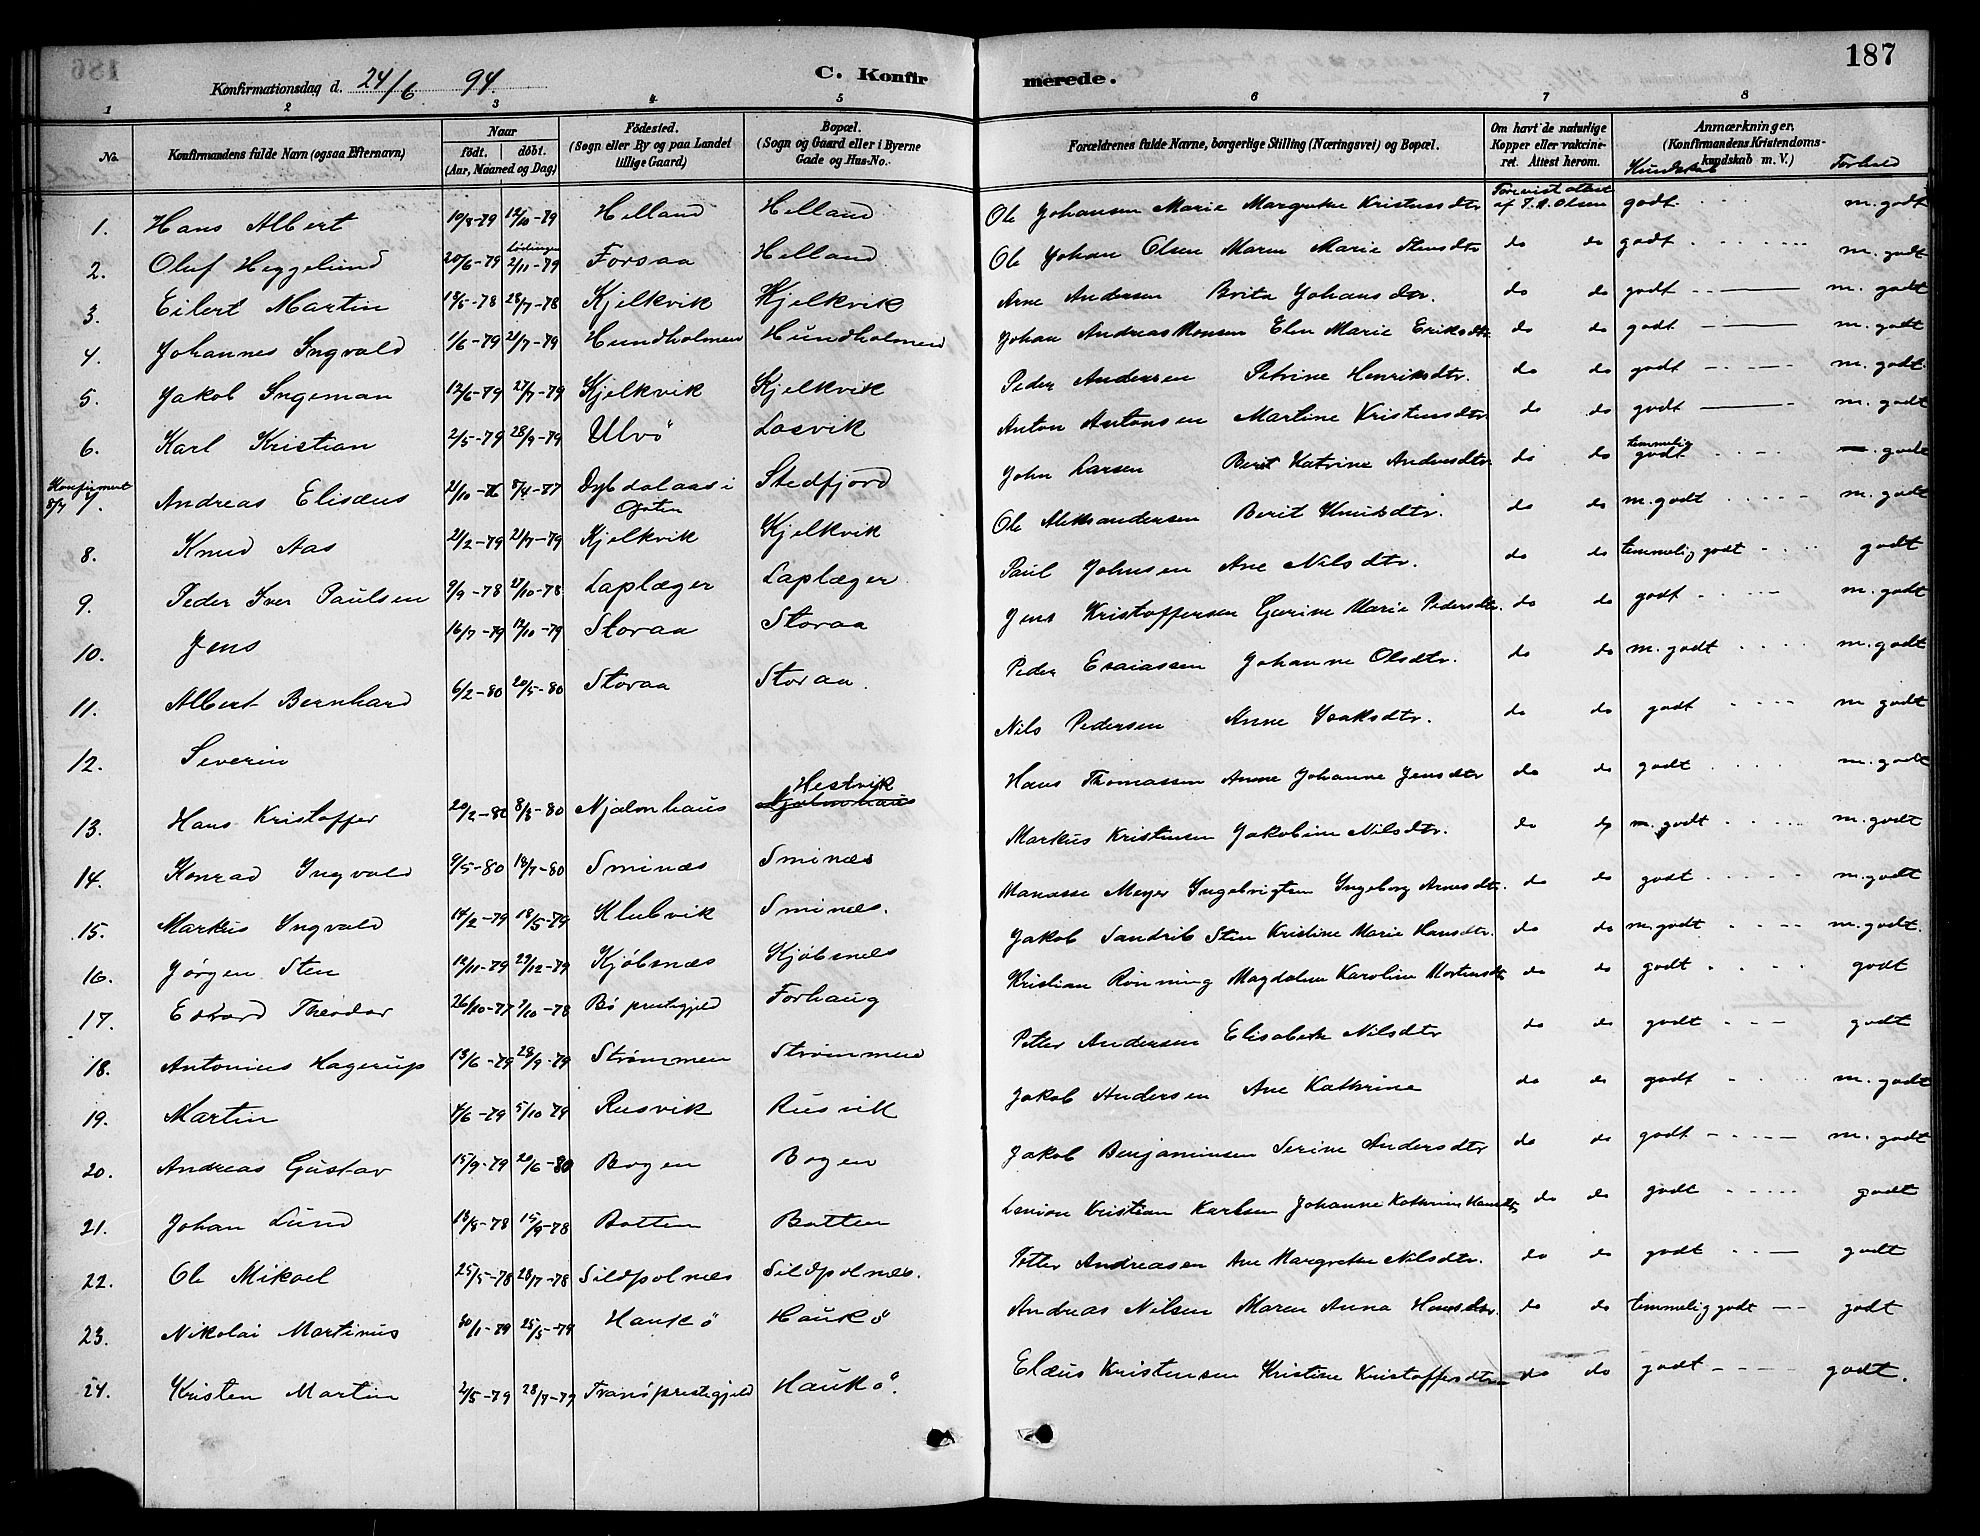 187
Konfirmationsdag d. 24/6 94.
C. Konfirmerede.
1 2 3 4 5 6 7 8
No.
Konfirmandens fulde Navn (ogsaa Efternavn)
Naar
født. døbt.
(Aar, Maaned og Dag)
Fødested.
(Sogn eller By og paa Landet
tillige Gaard)
Bopæl.
(Sogn og Gaard eller i Byerne
Gade og Hus-No.)
Forældrenes fulde Navne, borgerlige Stilling (Næringsvei) og Bopæl.
Om havt de naturlige
Kopper eller vaccine-
ret. Attest herom.
Anmærkninger.
(Konfirmandens Kristendoms-
kundskab m. V.)
Kundskab Forhold
1. Hans Albert 19/8-79 12/10-79 Helland Helland Ole Johansen Marie Margrethe Kristensdtr Forevist attest af T. A. Olsen godt m. godt
2. Oluf Heggelund 20/6-79 Lødingen 2/11-79 Forsaa Helland Ole Johan Olsen Maren Marie Stensdtr do do godt m. godt
3. Eilert Martin 18/5-78 28/7-78 Kjelkvik Kjelkvik Arne Andersen Brita Johansdtr. do do godt m. godt
4. Johannes Ingvald 1/6-79 21/7-79 Hundholmen Hundholmen Johan Andreas Monsen Elen Marie Eriksdtr do do godt m. godt
5. Jakob Ingeman 12/6-79 27/7-79 Kjelkvik Kjelkvik Peder Andersen Petrine Henriksdtr. do do godt m. godt
6. Karl Kristian 2/5-79 28/9-79 Ulvö Losvik Anton Antonsen Martine Kristensdtr do do godt m. godt
Konfirmert 8/7 7. Andreas Elisæus 2/10-76 8/4-77 Dybdalaas i Ofoten Stedfjord John Larsen Berit Katrine Andersdtr do do temmelig godt godt
8. Knud Aas 21/2-79 21/7-79 Kjelkvik Kjelkvik Ole Aleksandersen Berit Knudsdtr. do do m. godt m. godt
9. Peder Iver Paulsen 9/9-78 27/10-78 Laplæger Laplæger Paul Johnsen Ane Nilsdtr. do do temmelig godt godt
10. Jens 16/7-79 12/10-79 Storaa Storaa Jens Kristoffersen Gurine Marie Pedersdtr. do do godt m. godt
11. Albert Bernhard 6/2-80 20/5-80 Storaa Storaa. Peder Esaiassen Johanne Olsdtr. do do m. godt m. godt
12. Severin Nils Pedersen Anne Isaksdtr. do do godt m godt
13. Hans Kristoffer 20/2-80 8/8-80 Njalmhaus Hestvik Hans Thomassen Anne Johanne Jensdtr do do godt m. godt
14. Konrad Ingvald 9/5-80 18/7-80 Sminæs Sminæs Markus Kristensen Jakobine Nilsdtr. do do m. godt m. godt
15. Markus Ingvald 14/2-79 18/5-79 Klubvik Sminæs. Manasse Meyer Ingebrigtsen Ingeborg Arnesdtr. do do godt m. godt
16. Jørgen Sten 12/11-79 29/12-79 Kjøbsnæs Kjøbsnæs Jakob Sandrib Sten Kristine Marie Hansdtr. do do m. godt m. godt.
17. Edvard Theodor 26/10-77 /10-78 Bö prestegjeld Forhaug Kristian Rönning Magdalene Karoline Mortensdtr do do godt godt
18. Antonius Hagerup 13/6-79 28/9-79 Strømmen Strømmen Petter Andersen Elisabeth Nilsdtr do do godt godt
19. Martin 4/6-79 5/10 79 Rusvik Rusvik Jakob Andersen Ane Kathrine do do godt m. godt
20. Andreas Gustav 15/9-79 20/6-80 Bogen Bogen Jakob Benjaminsen Serine Andersdtr do do godt m. godt
21. Johan Lund 18/8-78 15/9-78 Botten Botten Kristian Karlsen Johanne Kathrine Hansdtr do do godt godt
22. Ole Mikael 25/5-78 28/7-78 Sildpolnæs Sildpolnæs. Petter Andreasen Ane Margrethe Nilsdtr. do do godt godt
23. Nikolai Martinus 30/1-79 25/5-79 Haukö Haukö Andreas Nilsen Maren Anna Hansdtr. do do temmelig godt godt
24. Kristen Martin 2/5-79 28/7-79 Tranö prestegjeld Haukö. Elæus Kristensen Kristine Kristoffersdtr do do godt godt.